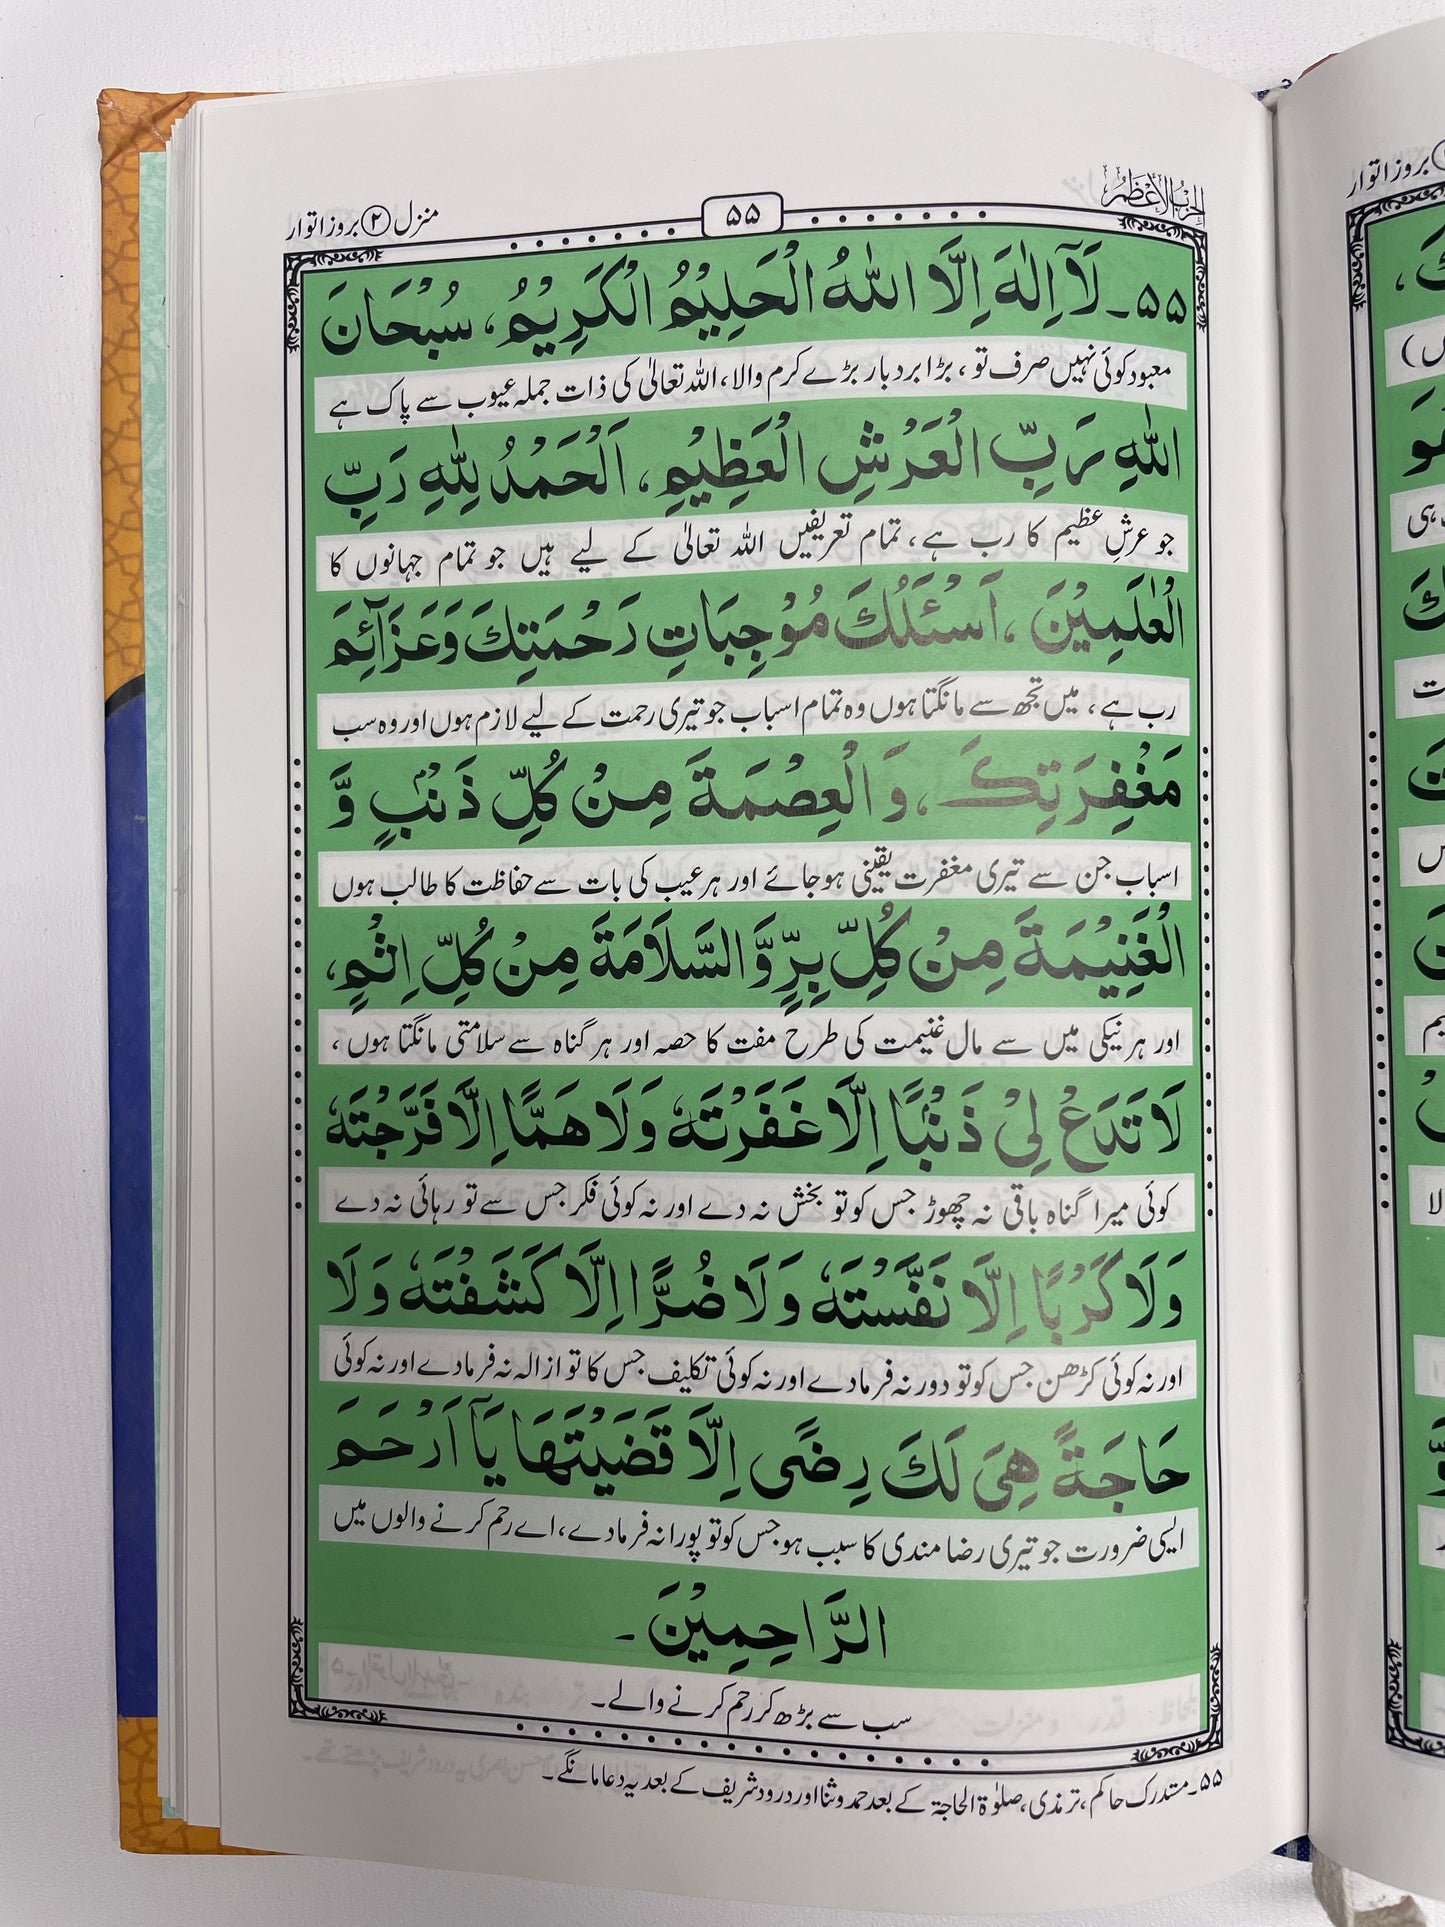 الحزب الاعظم
۵۵
منزل ② بروز اتوار
۵۵۔ لَآ اِلٰهَ اِلَّا اللّٰهُ الْحَلِيْمُ الْكَرِيْمُ، سُبْحَانَ
معبود کوئی نہیں صرف تو، بڑا بردبار بڑے کرم والا، اللہ تعالیٰ کی ذات جملہ عیوب سے پاک ہے
اللّٰهِ رَبِّ الْعَرْشِ الْعَظِيْمِ، اَلْحَمْدُ لِلّٰهِ رَبِّ
جو عرشِ عظیم کا رب ہے، تمام تعریفیں اللہ تعالیٰ کے لیے ہیں جو تمام جہانوں کا
الْعٰلَمِيْنَ، اَسْئَلُكَ مُوْجِبَاتِ رَحْمَتِكَ وَعَزَآئِمَ
رب ہے، میں تجھ سے مانگتا ہوں وہ تمام اسباب جو تیری رحمت کے لیے لازم ہوں اور وہ سب
مَغْفِرَتِكَ، وَالْعِصْمَةَ مِنْ كُلِّ ذَنْۢبٍ وَّ
اسباب جن سے تیری مغفرت یقینی ہوجائے اور ہر عیب کی بات سے حفاظت کا طالب ہوں
الْغَنِيْمَةَ مِنْ كُلِّ بِرٍّ وَّالسَّلَامَةَ مِنْ كُلِّ اِثْمٍ،
اور ہر نیکی میں سے مال غنیمت کی طرح مفت کا حصہ اور ہر گناہ سے سلامتی مانگتا ہوں،
لَا تَدَعْ لِيْ ذَنْۢبًا اِلَّا غَفَرْتَهٗ وَلَا هَمًّا اِلَّا فَرَّجْتَهٗ
کوئی میرا گناہ باقی نہ چھوڑ جس کو تو بخش نہ دے اور نہ کوئی فکر جس سے تو رہائی نہ دے
وَلَا كَرْبًا اِلَّا نَفَّسْتَهٗ وَلَا ضُرًّا اِلَّا كَشَفْتَهٗ وَلَا
اور نہ کوئی کڑھن جس کو تو دور نہ فرمادے اور نہ کوئی تکلیف جس کا تو ازالہ نہ فرمادے اور نہ کوئی
حَاجَةً هِيَ لَكَ رِضًى اِلَّا قَضَيْتَهَا يَآ اَرْحَمَ
ایسی ضرورت جو تیری رضامندی کا سبب ہو جس کو تو پورا نہ فرمادے، اے رحم کرنے والوں میں
الرَّاحِمِيْنَ۔
سب سے بڑھ کر رحم کرنے والے۔
۵۵۔ مستدرک حاکم، ترمذی، صلوٰۃ الحاجۃ کے بعد حمد وثنا اور درود شریف کے بعد یہ دعا مانگے۔